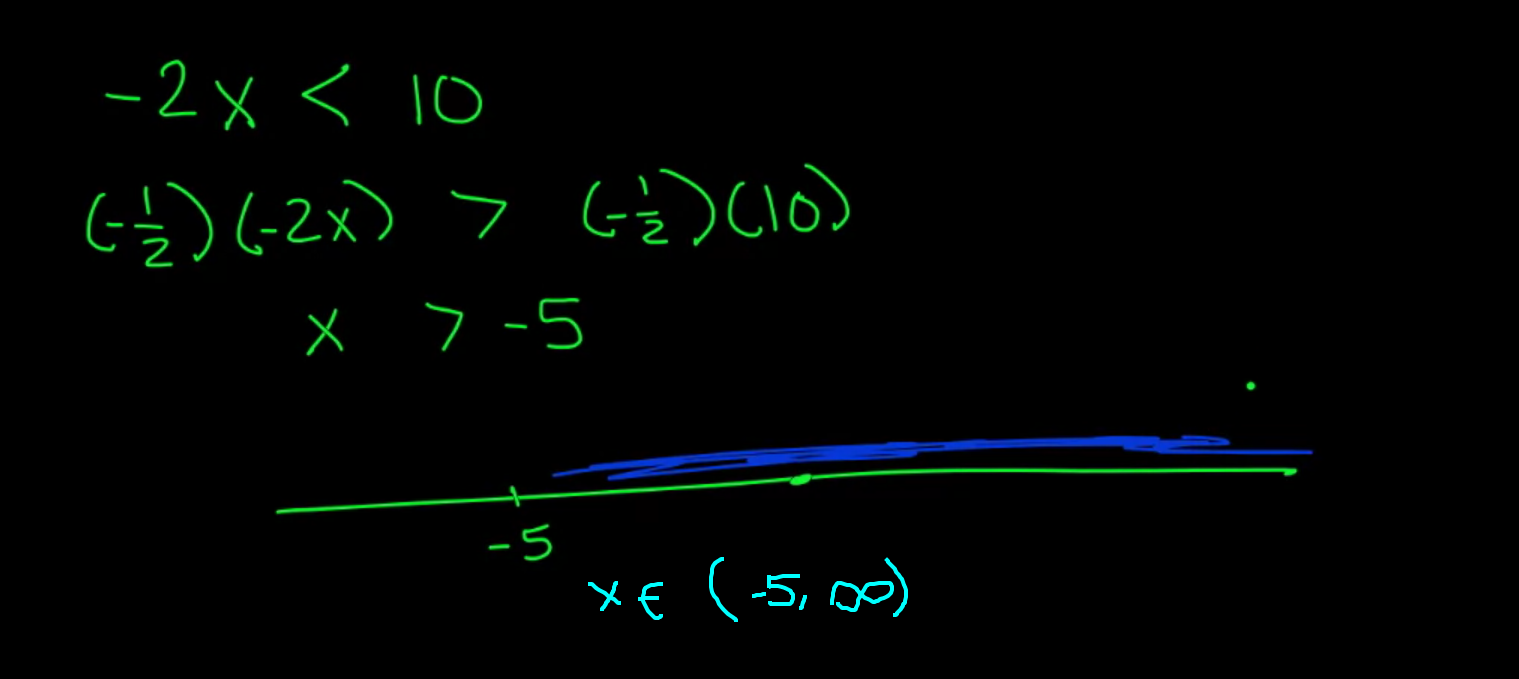 -2x < 10
(-1/2)(-2x) > (-1/2)(10)
x > -5
-5
x ∈ (-5, ∞)